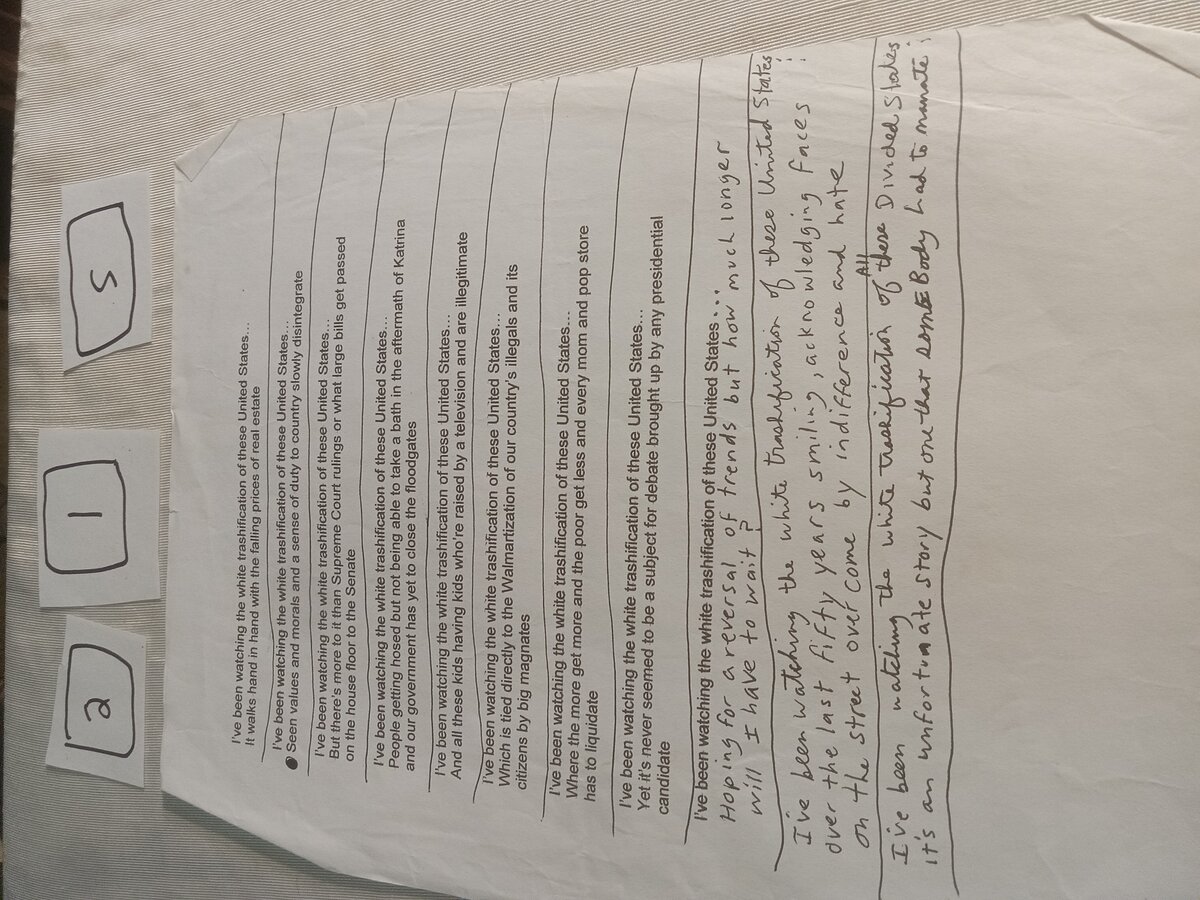 2 1 5
I've been watching the white trashification of these United States...
It walks hand in hand with the falling prices of real estate
I've been watching the white trashification of these United States...
Seen values and morals and a sense of duty to country slowly disintegrate
I've been watching the white trashification of these United States...
But there's more to it than Supreme Court rulings or what large bills get passed
on the house floor to the Senate
I've been watching the white trashification of these United States...
People getting hosed but not being able to take a bath in the aftermath of Katrina
and our government has yet to close the floodgates
I've been watching the white trashification of these United States...
And all these kids having kids who're raised by a television and are illegitimate
I've been watching the white trashification of these United States...
Which is tied directly to the Walmartization of our country's illegals and its
citizens by big magnates
I've been watching the white trashification of these United States...
Where the more get more and the poor get less and every mom and pop store
has to liquidate
I've been watching the white trashification of these United States...
Yet it's never seemed to be a subject for debate brought up by any presidential
candidate
I've been watching the white trashification of these United States...
Hoping for a reversal of trends but how much longer
will I have to wait?
I've been watching the white trashification of these United States:
over the last fifty years smiling, acknowledging faces
on the street overcome by indifference and hate
I've been watching the white trashification of All these Divided States
it's an unfortunate story but one that someBody had to